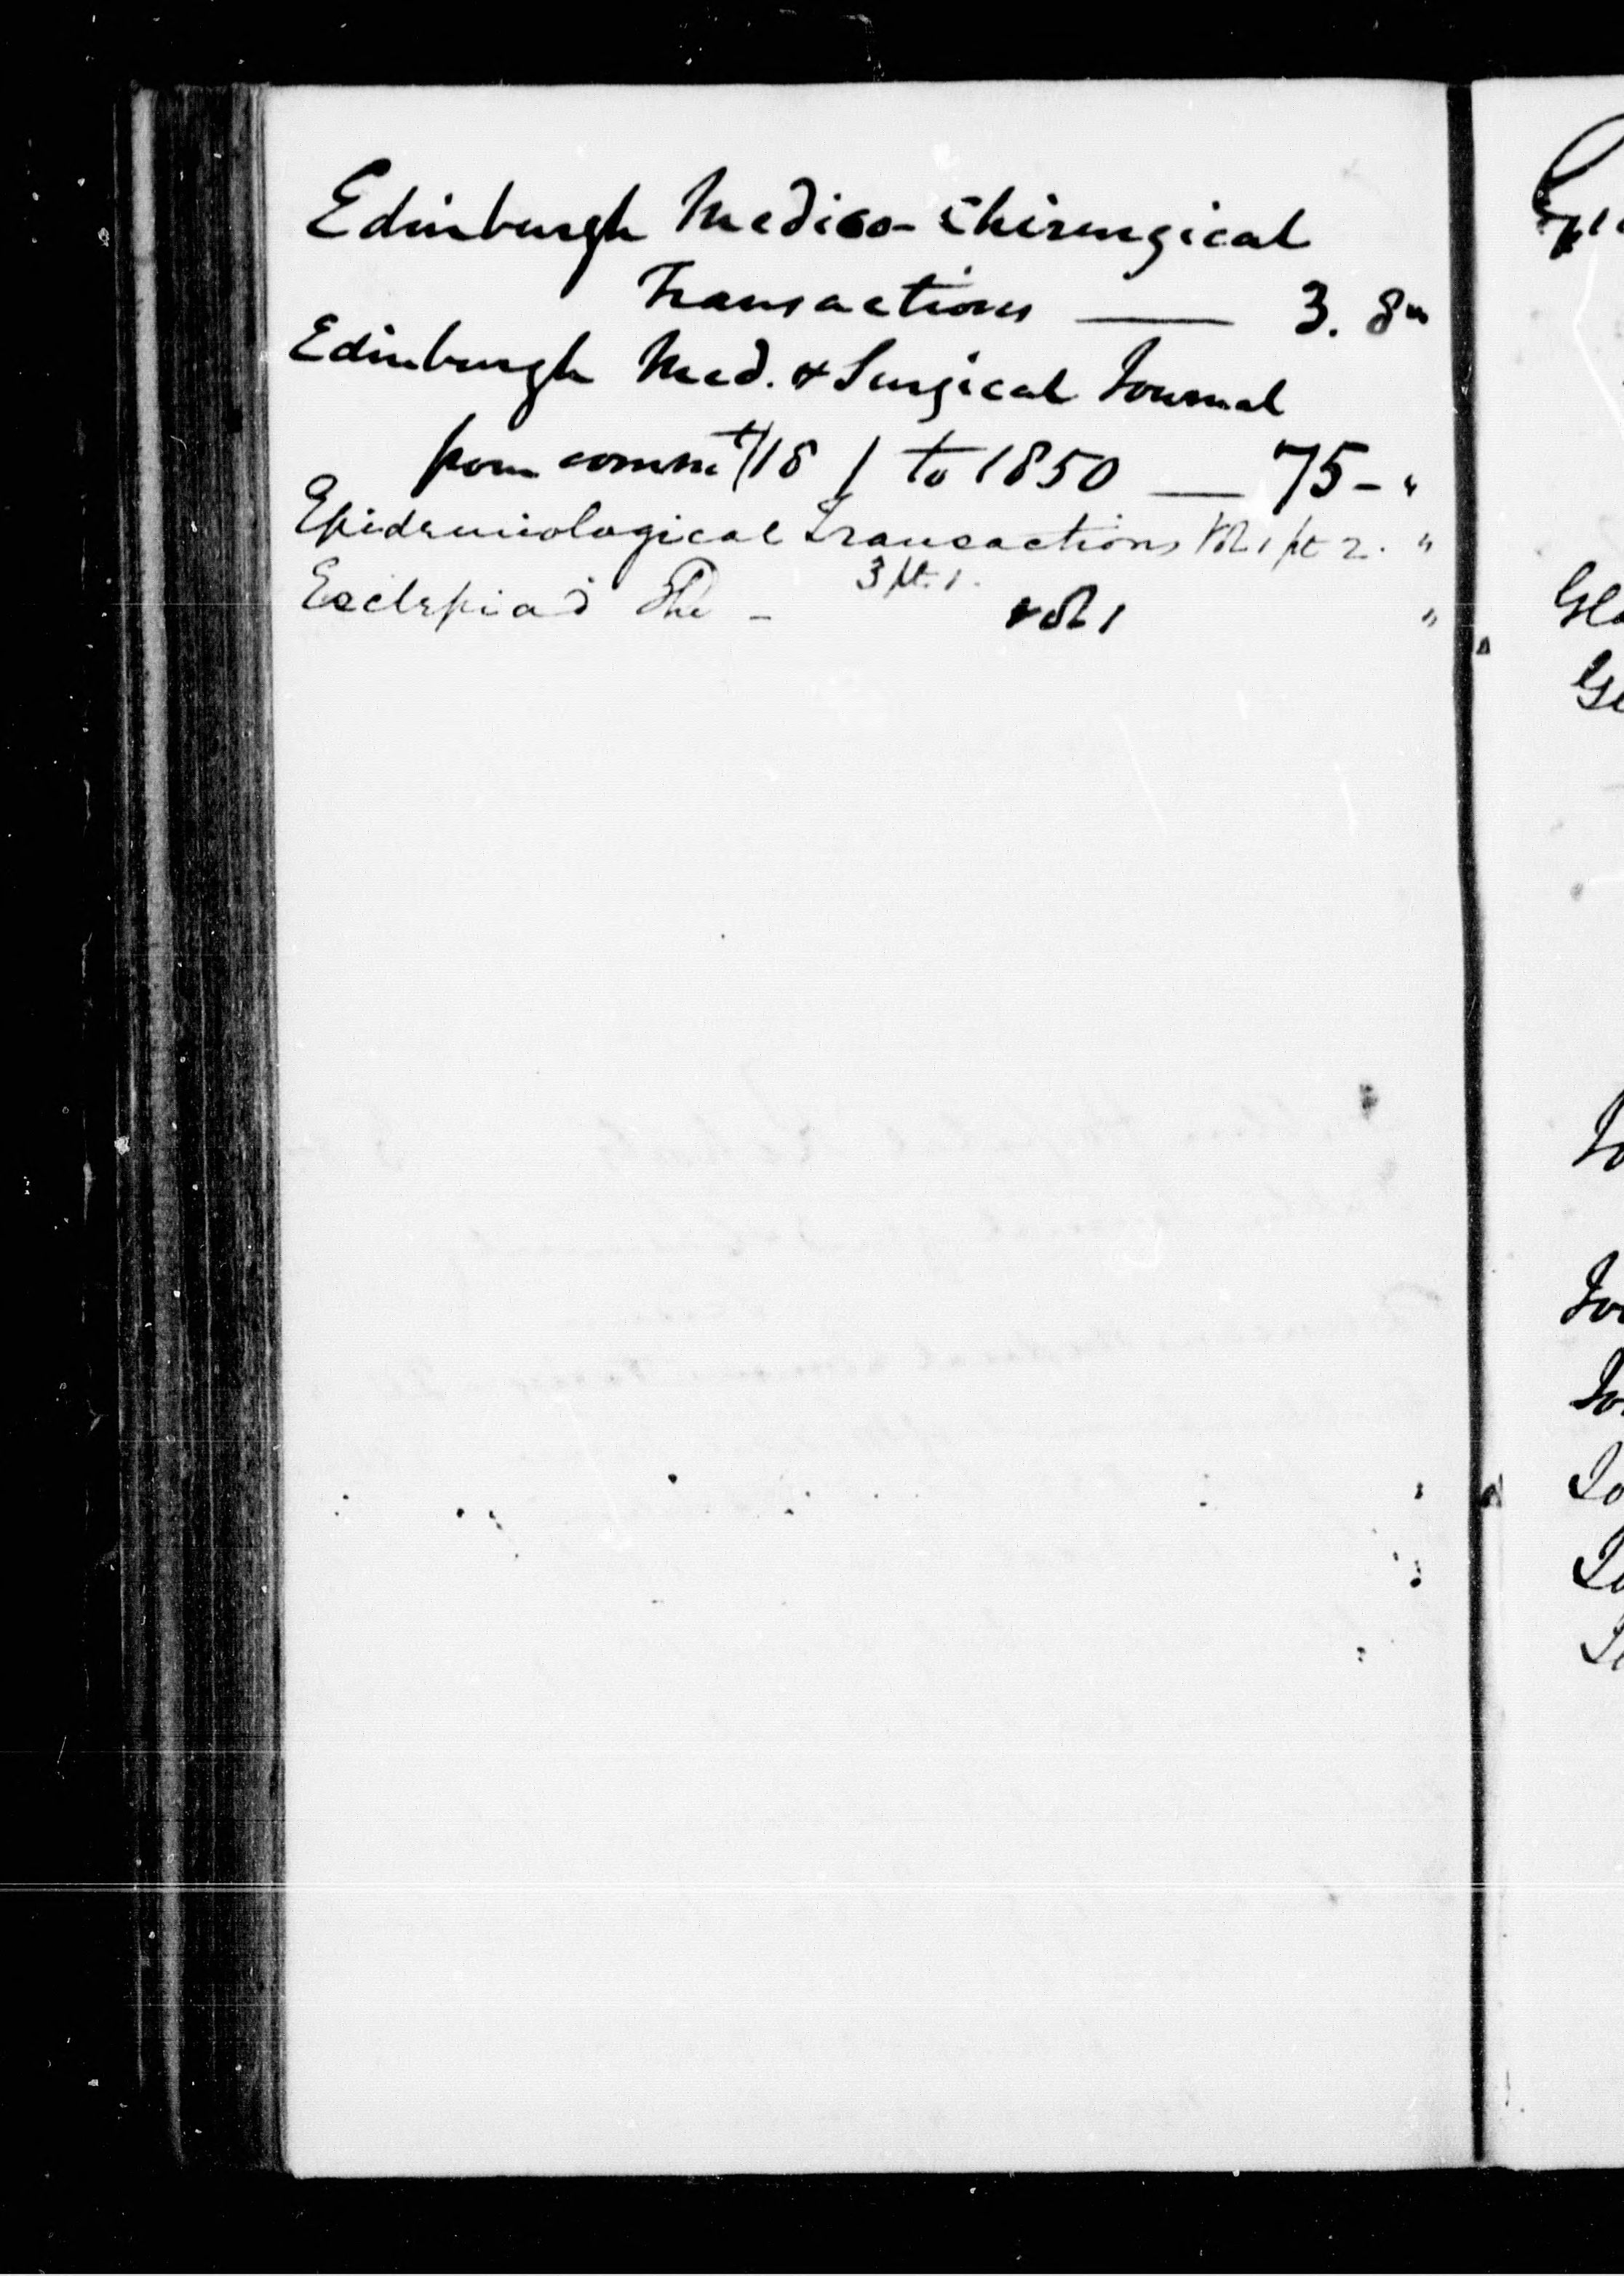 Edinburgh Medico-Chirurgical
Transactions — 3. 8vo
Edinburgh Med. & Surgical Journal
from commt/18 / to 1850 — 75 - "
Epidemiological Transactions Vol 1 pt 2. "
3 pt. 1.
Esclepiad The - vol 1 "